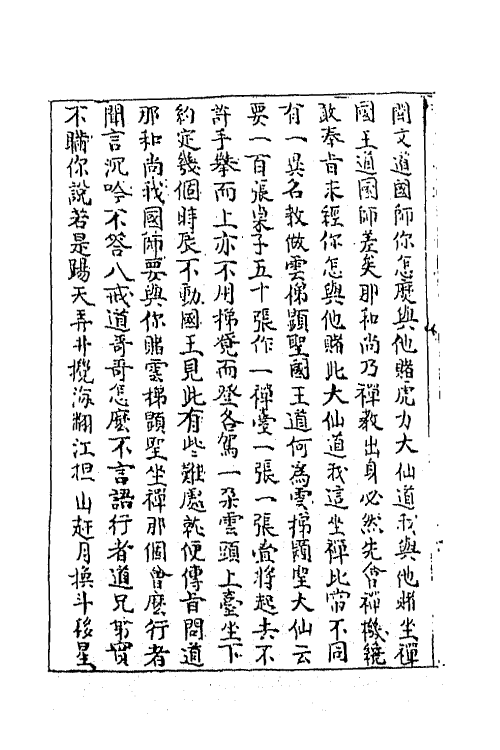 聞文道國師你怎麼與他賭虎力大仙道我與他賭坐禪
國王道國師差矣那和尚乃禪教出身必然先會禪機纔
敢奉旨求經你怎與他賭此大仙道我這坐禪比常不同
有一異名教做雲梯顯聖國王道何為雲梯顯聖大仙云
要一百張桌子五十張作一禪臺一張一張疊將起去不
許手攀而上亦不用梯凳而登各駕一朵雲頭上臺坐下
約定幾個時辰不動國王見此有些難處就便傳旨問道
那和尚我國師要與你賭雲梯顯聖坐禪那個會麼行者
聞言沉吟不答八戒道哥哥怎麼不言語行者道兄弟實
不瞞你說若是踢天弄井攪海翻江担山赶月換斗移星